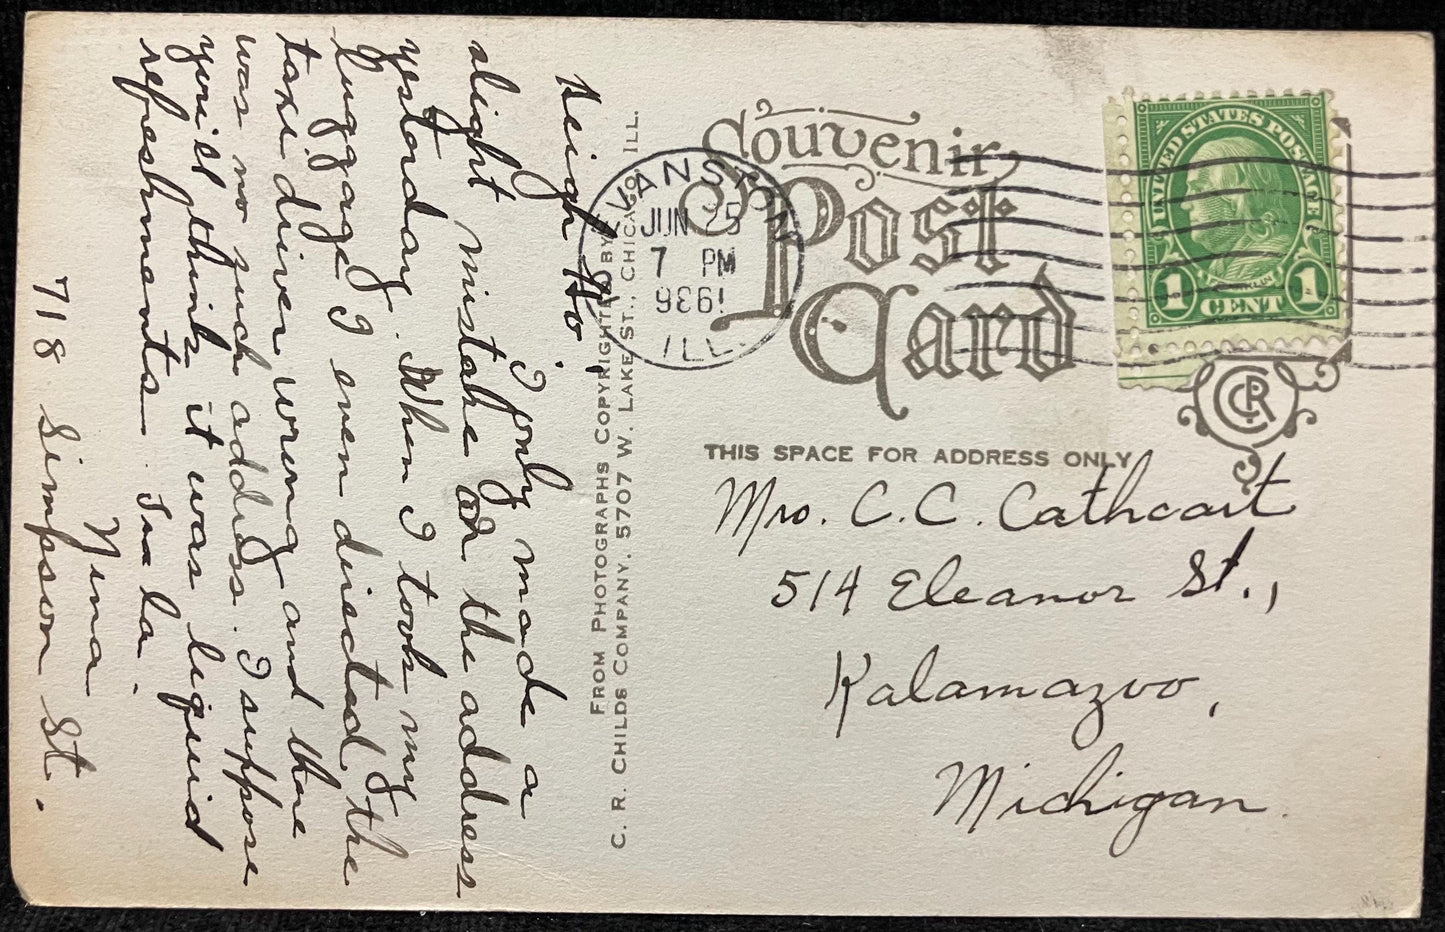 Heigh Ho!
I only made a
slight mistake on the address
yesterday. When I took my
luggage I even directed the
taxi driver wrong and there
was no such address. I suppose
you'd think it was liquid
refreshments. Tra la.
Nina
718 Simpson St.
FROM PHOTOGRAPHS COPYRIGHTED BY
C. R. CHILDS COMPANY, 5707 W. LAKE ST., CHICAGO, ILL.
Souvenir
Post
Card
EVANSTON
JUN 25
7 PM
ILL.
UNITED STATES POSTAGE
FRANKLIN
1 CENT 1
CRC
THIS SPACE FOR ADDRESS ONLY
Mrs. C. C. Cathcart
514 Eleanor St.,
Kalamazoo,
Michigan.